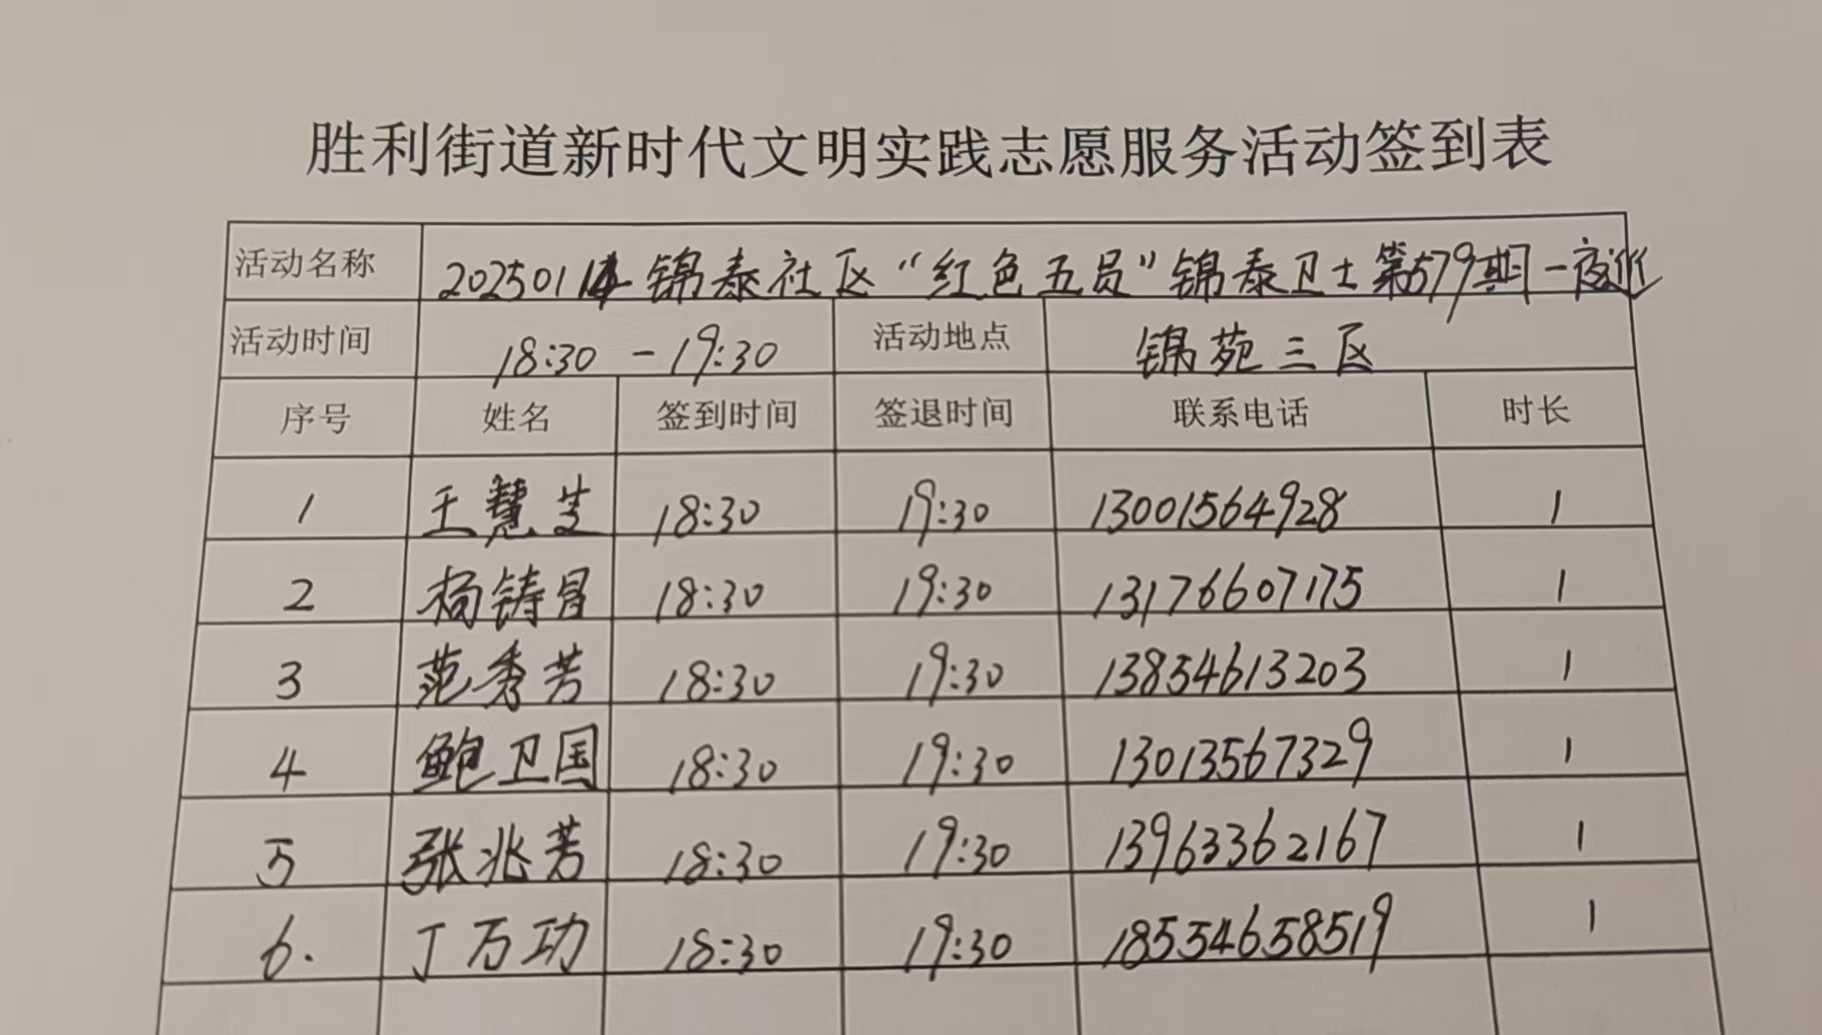 胜利街道新时代文明实践志愿服务活动签到表
活动名称 20250114 锦泰社区“红色五员”锦泰卫士第579期一夜巡
活动时间 18:30 - 19:30 活动地点 锦苑三区
序号 姓名 签到时间 签退时间 联系电话 时长
1 王慧芝 18:30 19:30 13001564928 1
2 杨铸昌 18:30 19:30 13176607175 1
3 范秀芳 18:30 19:30 13854613203 1
4 鲍卫国 18:30 19:30 13013567329 1
5 张兆芳 18:30 19:30 13963362167 1
6. 丁万功 18:30 19:30 18554658519 1